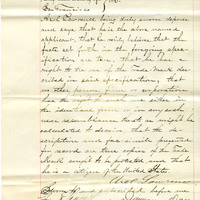 San Francisco }
being duly sworn deposes
and says that he is the above named
applicant, that he verily believes that the
facts set forth in the foregoing speci-
fication are true, that he has a
right to the use of the Trade Mark
described in said specifications, that
no other person firm or corporation
has the right to such use either in
the identical form or in any such
near resemblance thereto as might be
calculated to deceive, that the de-
scription and fac-simile presented
for record are true copies of the Trade
Mark sought to be protected and that
he is a citizen of the United States.
Sworn to and subscribed before me